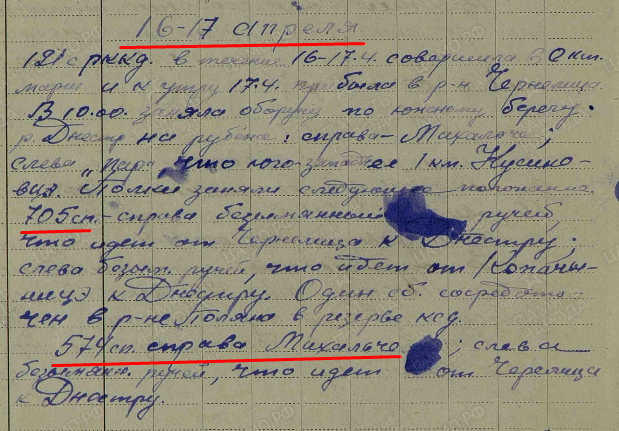 16-17 апреля
121с ркккд. в течение 16-17.4. совершила 50 км.
марш и к утру 17.4. прибыла в р-н Чернелица.
В 10.00. заняла оборону по южному берегу
р. Днестр на рубеже: справа - Михальче;
слева „пара что юго-западнее 1 км. Кусико-
вце. Полки заняли следующее положение.
705сп - справа безымянный ручей,
что идет от Чернелица к Днестру;
слева безым. ручей, что идет от Копачы-
ницэ к Днестру. Один сб. сосредото-
чен в р-не Поляна в резерве ксд.
574сп. справа Михальче ; слева
безымянн. ручей, что идет от Черелица
к Днестру.